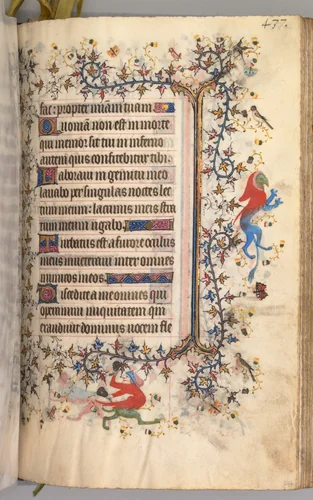 477.
fac: propter miam tuam
Quoniam non est in morte
qui memor sit tui in inferno
autem quis confitebitur tibi
Laboraui in gemitu meo
lauabo per singulas noctes lec
tum meum: lacrimis meis stra
tum meum rigabo
Turbatus est a furore oculus
meus inueteraui inter omnes
inimicos meos.
Discedite a me omnes qui
operamini iniquitatem qm
exaudiuit dominus uocem fle